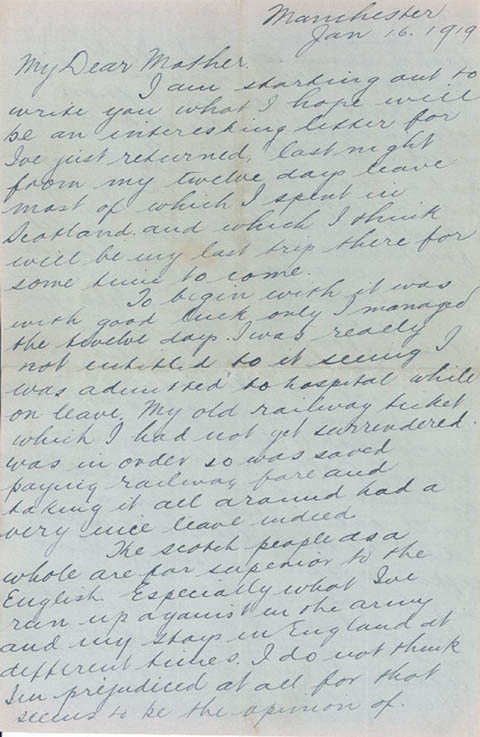 Manchester
Jan 16. 1919
My Dear Mother.
I am starting out to
write you what I hope will
be an interesting letter for
I've just returned, last night
from my twelve days leave
most of which I spent in
Scotland. and which I think
will be my last trip there for
some time to come.
To begin with it was
with good luck only I managed
the twelve days. I was really
not entitled to it seeing I
was admitted to hospital while
on leave. My old railway ticket
which I had not yet surrendered.
was in order so was saved
paying railway fare and
taking it all around had a
very nice leave indeed
The scotch people as a
whole are far superior to the
English. Especially what I've
run up against in the army
and my stays in England at
different times. I do not think
I'm prejudiced at all for that
seems to be the opinion of.